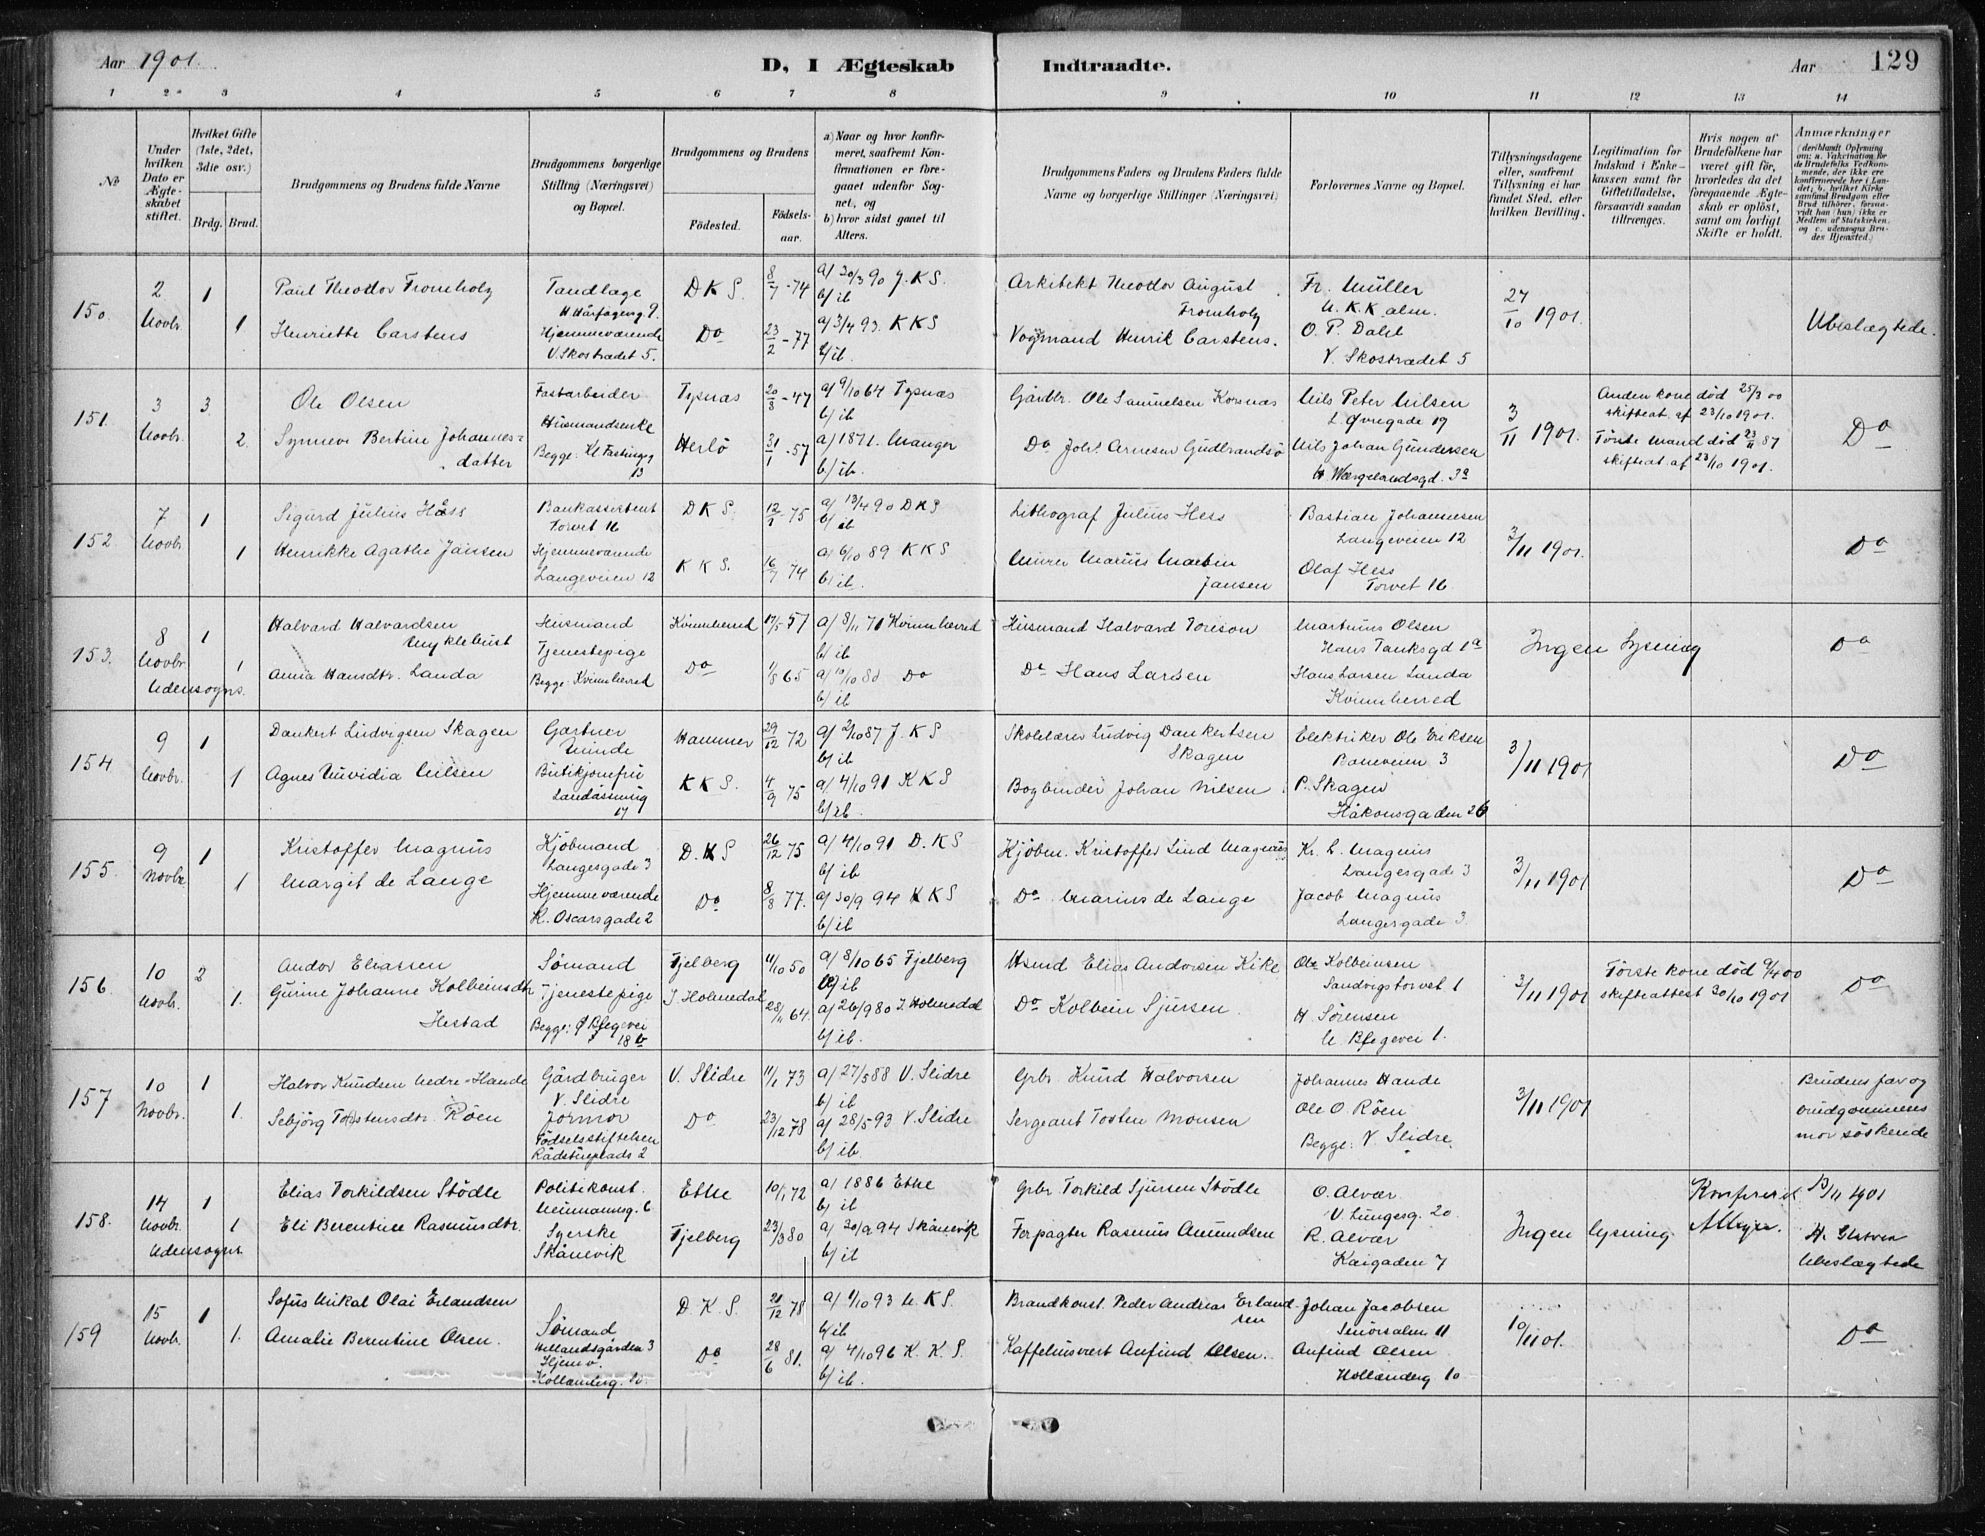 Aar 1901.
D, I Ægteskab Indtraadte.
Aar 129
1 2 3 4 5 6 7 8 9 10 11 12 13 14
No
Under hvilken Dato er Ægteskabet stiftet.
Hvilket Gifte (1ste, 2det, 3die osv.)
Brdg. Brud.
Brudgommens og Brudens fulde Navne
Brudgommens borgerlige Stilling (Næringsvei) og Bopæl.
Brudgommens og Brudens
Födested. Födselsaar.
a) Naar og hvor konfirmeret, saafremt Konfirmationen er foregaaet udenfor Sognet, og
b) hvor sidst gaaet til Alters.
Brudgommens Faders og Brudens Faders fulde Navne og borgerlige Stillinger (Næringsvei)
Forlovernes Navne og Bopæl.
Tillysningsdagene eller, saafremt Tillysning ei har fundet Sted, efter hvilken Bevilling.
Legitimation for Indskud i Enkekassen samt for Giftetilladelse, forsaavidt saadan tiltrænges.
Hvis nogen af Brudefolkene har været gift för, hvorledes da det foregaaende Ægteskab er oplöst, samt om lovligt Skifte er holdt.
Anmærkninger
150. 2 Novbr. 1 1
Paul Theodor Fromholz
Henriette Carstens
Tandlæge
H Hårfagersg. 9.
Hjemmeværende
V. Skostrædet 5.
D K S. 8/7 - 74
Do 23/2 - 77
a/ 30/3 90 J. K S.
b/ ib
a/ 3/4 93. K K S
b/ ib.
Arkitekt Theodor August Fromholz
Vognmand Henrik Carstens.
Fr. Müller
N. K. K. alm.
O. P. Dahl
V. Skostrædet 5
27/10 1901.
Ubeslægtede.
151. 3 Novbr. 3. 2.
Ole Olsen
Synneve Bertine Johannesdatter
Fastarbeider
Husmandsenke
Begge: Kl Fastingsg 13
Tysnæs 20/8 - 47
Herlö 31/1 - 57
a/ 9/10 64 Tysnæs
b/ ib
a/ 1871. Manger
b/ ib.
Gårdbr. Ole Samuelsen Korsnæs
Do Joh. Arnesen Gudbrandsö
Nils Peter Nilsen
L. Øvregade 19
Nils Johan Gundersen
H. Wærgelandsgd. 3a
3/11 1901.
Anden kone död 25/3 00
skifteat. af 23/10 1901.
Förste mand död 23/11 87
skifteat. af 23/10 1901.
Do
152 7 Novbr 1 1
Sigurd Julius Hess
Henrikke Agathe Jansen
Bankassistent
Torvet 16
Hjemmeværende
Langeveien 12
D K S 12/1 - 75
K K S. 16/7 74
a/ 13/4 90 D K S
b/ ib
a/ 6/10 89 K K S
b/ ib.
Lithograf Julius Hess
Murer Marius Martin Jansen
Bastian Johannesen
Langeveien 12
Olaf Hess
Torvet 16
3/11 1901.
Do
153. 8 Novbr. 1 1
Udensogns.
Halvard Halvardsen Myklebust
Anna Hansdtr. Landa
Husmand
Tjenestepige
Begge: Kvinnherred
Kvinnherred 17/5 57
Do 11/8 65
a/ 8/11 71 Kvinnherred
b/ ib
a/ 10/10 80 Do
b/ ib
Husmand Halvard Torison
Do Hans Larsen
Martinus Olsen
Hans Tanksgd 1a
Hans Larsen Landa
Kvinnherred
Ingen Lysning
Do
154 9 Novbr. 1 1
Dankert Ludvigsen Skagen
Agnes Nuvidia Nilsen
Gartner
Minde
Butikjomfru
Landåssmug 17
Hammer 29/12 72
K K S. 4/9 75
a/ 2/10 87 J. K S
b/ ib
a/ 4/10 91 K K S
b/ ib.
Skolelærer Ludvig Dankertsen Skagen
Bogbinder Johan Nilsen
Elektriker Ole Eriksen
Baneveien 3
P. Skagen
Håkonsgaden 26
3/11 1901
Do
155. 9 Novbr. 1 1
Kristoffer Magnus
Margit de Lange
Kjöbmand
Langesgade 3
Hjemmeværende
K. Oscarsgade 2
D. K S 26/12 75
Do 8/8 77.
a/ 4/10 91 D. K S
b/ ib
a/ 30/9 94 K K S
b/ ib
Kjöbm. Kristoffer Lind Magnus
Do Marius de Lange
Kr. L. Magnus
Langesgade 3
Jacob Magnus
Langesgade 3.
3/11 1901
Do
156. 10 Novbr. 2 1.
Andor Eliassen
Gurine Johanne Kolbeinsdtr Hestad
Sömand
Tjenestepige
Fjelberg 11/10 50
S. Holmedal 28/11 64.
a/ 8/10 65 Fjelberg
b/ ib
a/ 26/9 80 S. Holmedal
b/ ib.
Hsmd Elias Andorsen Kike
Do Kolbein Sjursen
Ole Kolbeinsen
Sandvigstorvet 1
H. Sörensen
3/11 1901
Förste kone död 9/4 00
skifteattest 30/10 1901
Do
157 10 Novbr. 1 1.
Halvor Knudsen Nedre-Hande
Sebjörg Torstensdtr. Röen
Gårdbruger
V. Slidre
Jormor
Födselsstiftelsen
Rådstueplads 2
V. Slidre 11/1 73
Do 23/12 78
a/ 27/5 88 V. Slidre
b/ ib
a/ 28/5 93 V. Slidre
b/ ib.
Grbr. Knud Halvorsen
Sergeant Tosten Monsen
Johannes Hande
Ole O. Röen
Begge: V. Slidre.
3/11 1901
Brudens far og
brudgommens
mor söskende
158. 14 Novbr. 1 1
Udensogns
Elias Torkildsen Stödle
Eli Berentine Rasmusdtr.
Politikonst.
Neumannsg. 6
Syerske
Skånevik
Etne 10/1 72
Fjelberg 23/3 80
a/ 1886 Etne
b/ ib
a/ 30/9 94 Skånevik
b/ ib
Grbr. Torkild Sjursen Stödle
Forpagter Rasmus Amundsen
O. Alvær
V. Lungesg. 20.
R. Alvær
Kaigaden 7
Ingen lysning.
13/11 1901
Ubeslægtede
159 15 Novbr. 1 1.
Sofus Mikal Olai Erlandsen
Amalie Berentine Olsen.
Sömand
Hollandsgården 3
Hjemv.
Hollænderg. 10.
D. K S. 20/12 78
Do 28/6 81.
a/ 1/10 93 N. K S.
b/ ib
a/ 4/10 96 K. K. S.
b/ ib.
Brandkonst. Peder Andreas Erlandsen
Kaffehusvert Anfind Olsen.
Johan Jacobsen
Smörsalmen 11
Anfind Olsen
Hollænderg 10
10/11 01.
Do